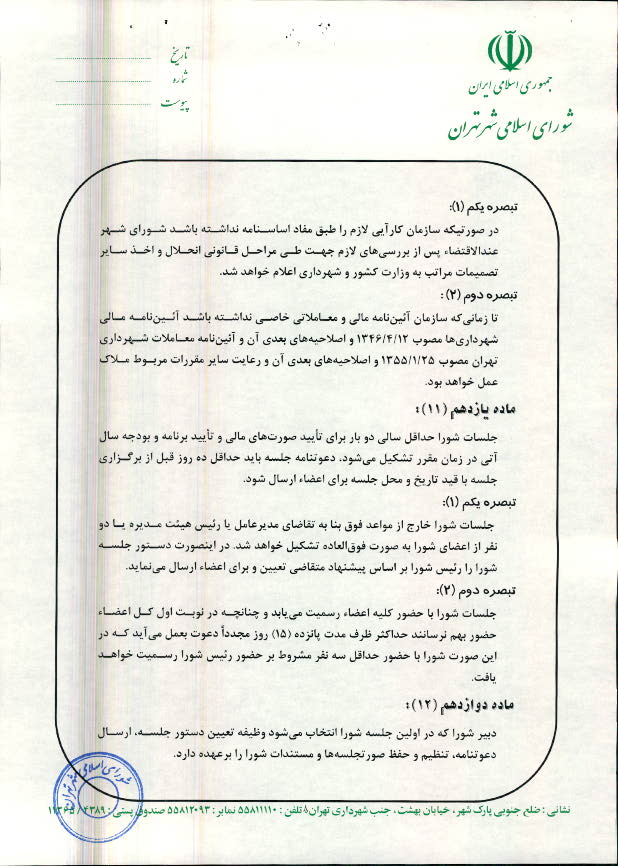 جمهوری اسلامی ایران
شورای اسلامی شهر تهران
تاریخ
شماره
پیوست
تبصره یکم (۱):
در صورتیکه سازمان کارآیی لازم را طبق مفاد اساسنامه نداشته باشد شورای شهر
عندالاقتضاء پس از بررسی‌های لازم جهت طی مراحل قانونی انحلال و اخذ سایر
تصمیمات مراتب به وزارت کشور و شهرداری اعلام خواهد شد.
تبصره دوم (۲):
تا زمانی‌که سازمان آئین‌نامه مالی و معاملاتی خاصی نداشته باشد آئین‌نامه مالی
شهرداری‌ها مصوب ۱۳۴۶/۴/۱۲ و اصلاحیه‌های بعدی آن و آئین‌نامه معاملات شهرداری
تهران مصوب ۱۳۵۵/۱/۲۵ و اصلاحیه‌های بعدی آن و رعایت سایر مقررات مربوط ملاک
عمل خواهد بود.
ماده یازدهم (۱۱):
جلسات شورا حداقل سالی دو بار برای تأیید صورت‌های مالی و تأیید برنامه و بودجه سال
آتی در زمان مقرر تشکیل می‌شود. دعوتنامه جلسه باید حداقل ده روز قبل از برگزاری
جلسه با قید تاریخ و محل جلسه برای اعضاء ارسال شود.
تبصره یکم (۱):
جلسات شورا خارج از مواعد فوق بنا به تقاضای مدیرعامل یا رئیس هیئت مدیره یا دو
نفر از اعضای شورا به صورت فوق‌العاده تشکیل خواهد شد. در اینصورت دستور جلسه
شورا را رئیس شورا بر اساس پیشنهاد متقاضی تعیین و برای اعضاء ارسال می‌نماید.
تبصره دوم (۲):
جلسات شورا با حضور کلیه اعضاء رسمیت می‌یابد و چنانچه در نوبت اول کل اعضاء
حضور بهم نرسانند حداکثر ظرف مدت پانزده (۱۵) روز مجدداً دعوت بعمل می‌آید که در
این صورت شورا با حضور حداقل سه نفر مشروط بر حضور رئیس شورا رسمیت خواهد
یافت.
ماده دوازدهم (۱۲):
دبیر شورا که در اولین جلسه شورا انتخاب می‌شود وظیفه تعیین دستور جلسه، ارسال
دعوتنامه، تنظیم و حفظ صورتجلسه‌ها و مستندات شورا را برعهده دارد.
شورای اسلامی شهر تهران
نشانی : ضلع جنوبی پارک شهر، خیابان بهشت، جنب شهرداری تهران تلفن : ۵۵۸۱۱۱۱۰ نمابر : ۵۵۸۱۲۰۹۳ صندوق پستی : ۴۳۸۹ / ۱۱۳۶۵